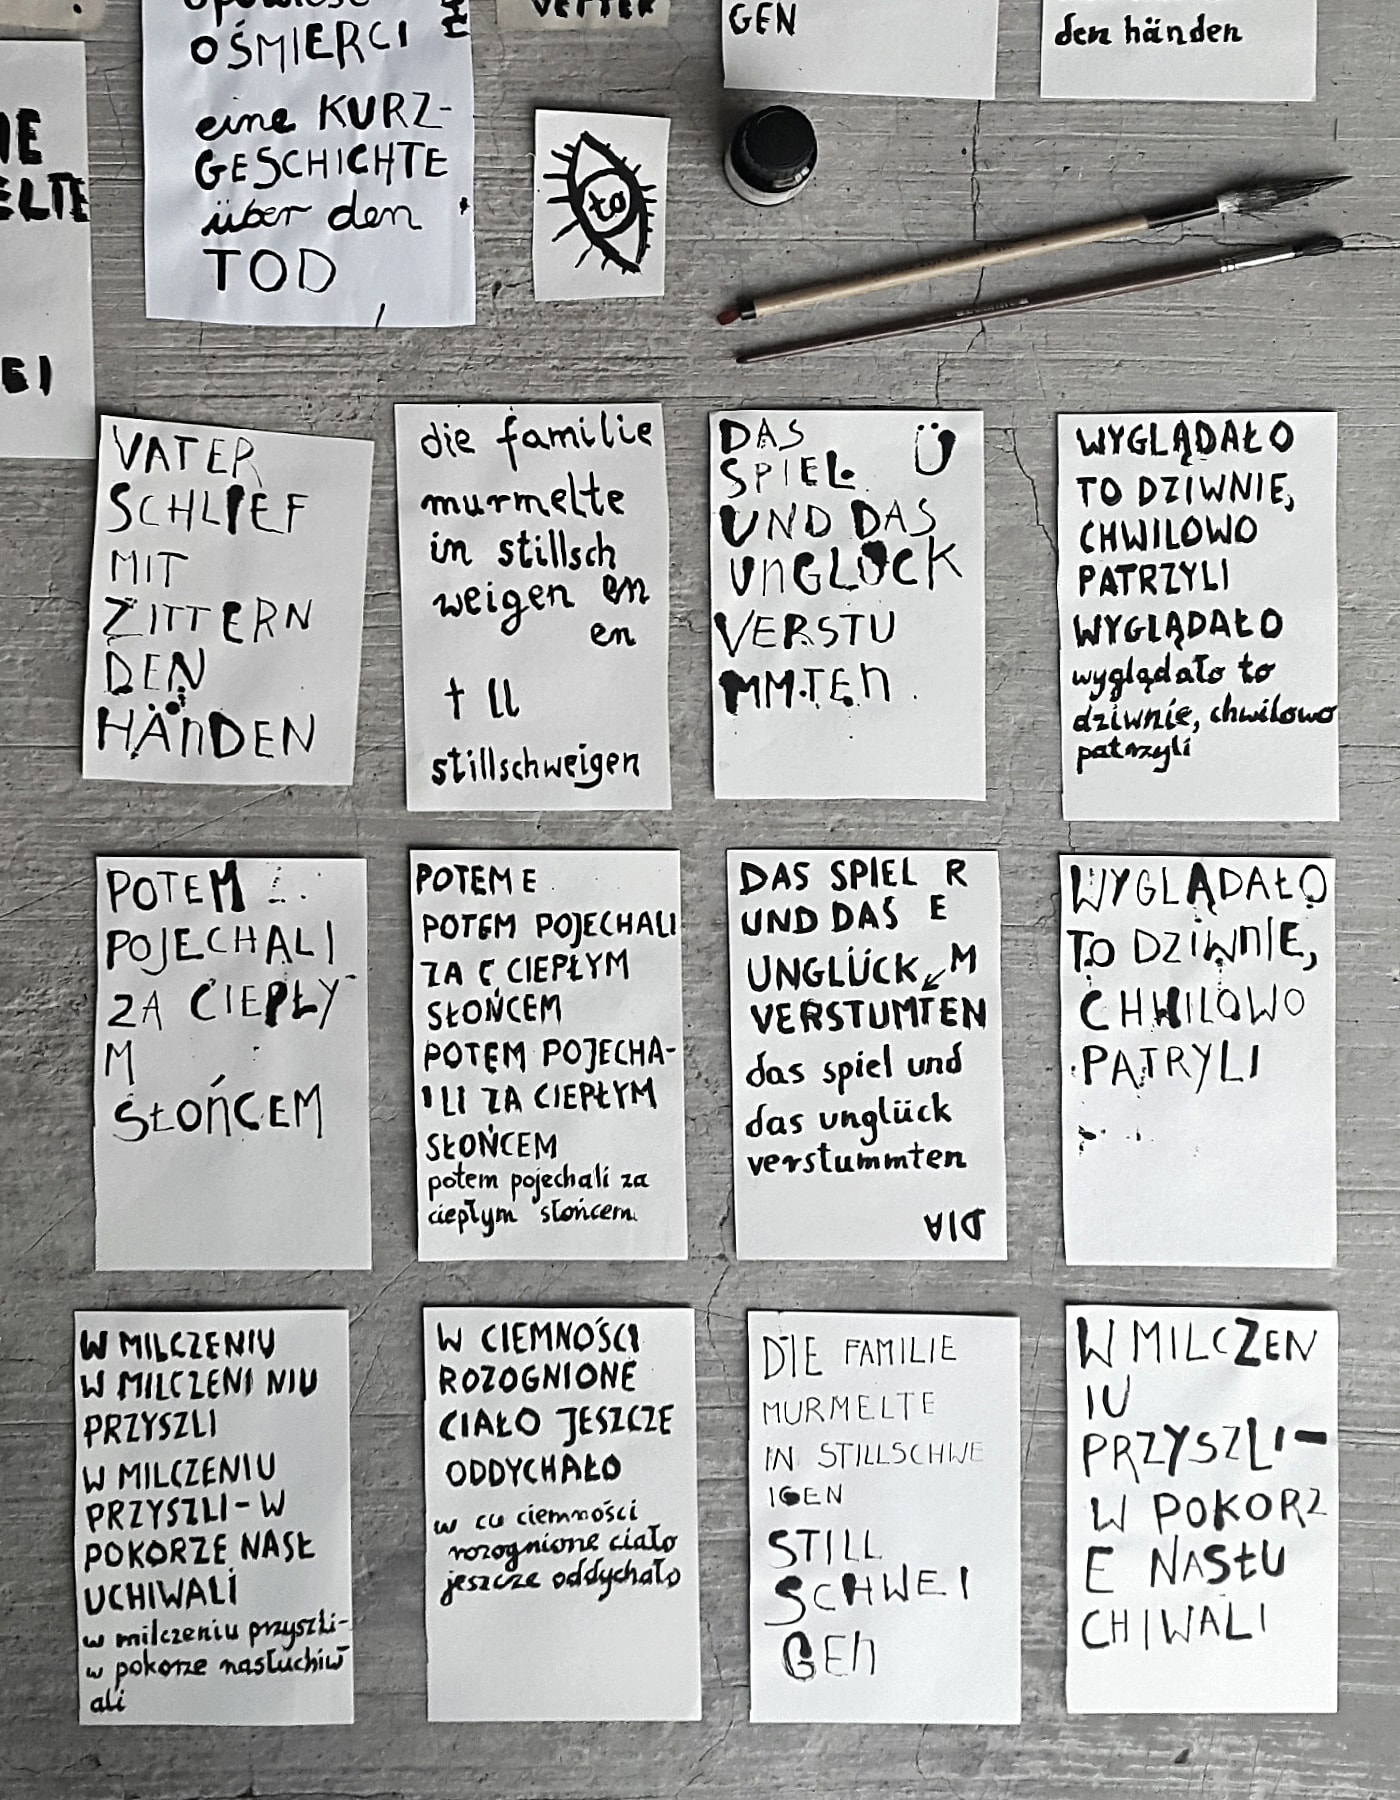 OŚMIERCI
eine KURZ-
GESCHICHTE
über den
TOD
to
GEN
den händen
IE
ELTE
EI
VATER
SCHLIEF
MIT
ZITTERN
DEN
HÄnDEN
die familie
murmelte
in stillsch
weigen en
en
t ll
stillschweigen
DAS Ü
SPIEL.
UND DAS
UnGLÜCK
VERSTU
MMTEn.
WYGLĄDAŁO
TO DZIWNIE,
CHWILOWO
PATRZYLI
WYGLĄDAŁO
wyglądało to
dziwnie, chwilowo
patrzyli
POTEM
POJECHALI
ZA CIEPŁY
M
SŁOńCEM
POTEM E
POTEM POJECHALI
ZA C CIEPŁYM
SŁOŃCEM
POTEM POJECHA-
I LI ZA CIEPŁYM
SŁOŃCEM
potem pojechali za
ciepłym słońcem
DAS SPIEL R
UND DAS E
UNGLÜCK M
VERSTUMTEN
das spiel und
das unglück
verstummten
DIA
WYGLĄDAŁO
TO DZIWnIE,
CHWILOWO
PATRYLI
W MILCZENIU
W MILCZENI NIU
PRZYSZLI
W MILCZENIU
PRZYSZLI-W
POKORZE NASŁ
UCHIWALI
w milczeniu przyszli-
w pokorze nasłuchiw
ali
W CIEMNOŚCI
ROZOGNIONE
CIAŁO JESZCZE
ODDYCHAŁO
w cu ciemności
rozognione ciało
jeszcze oddychało
DIE FAMILIE
MURMELTE
IN STILLSCHWE
IGEN
STILL
SCHWEI
GEn
W MILCZEN
IU
PRZYSZLI-
W POKORZ
E NASŁU
CHIWALI